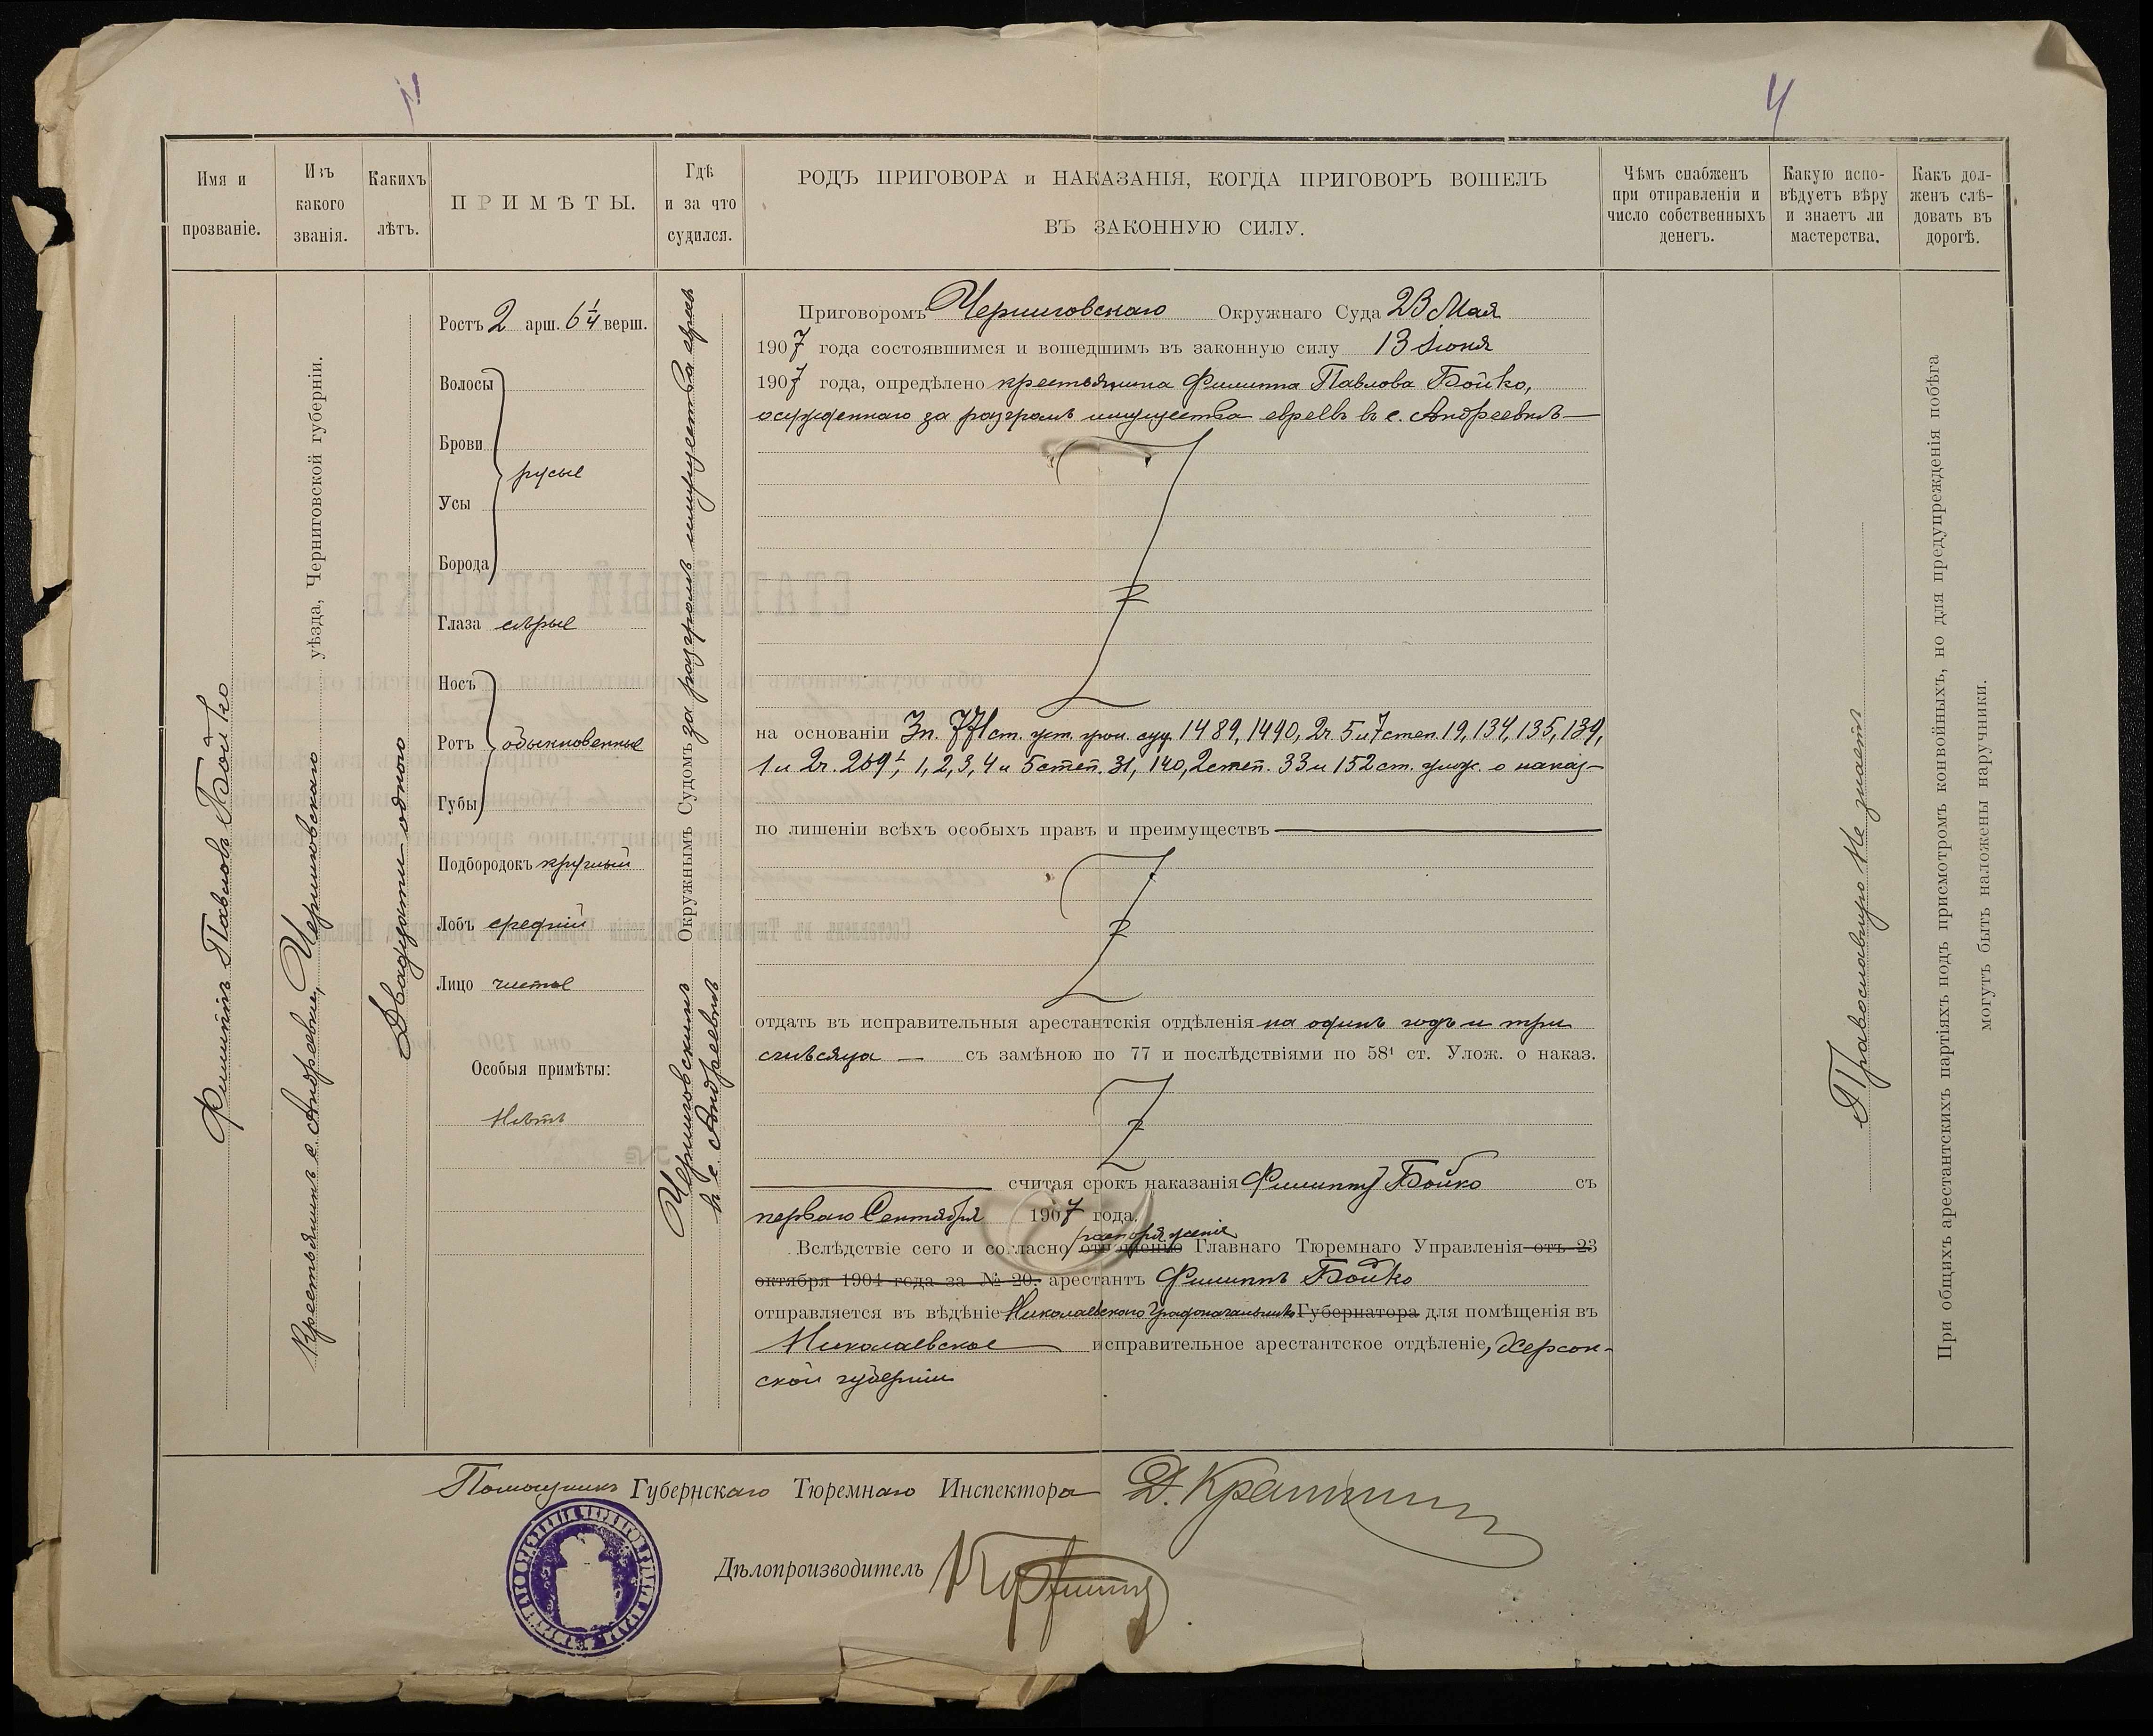 4
Имя и
прозваніе.
Изъ
какого
званія.
Какихъ
лѣтъ.
ПРИМѢТЫ.
Гдѣ
и за что
судился.
РОДЪ ПРИГОВОРА и НАКАЗАНІЯ, КОГДА ПРИГОВОРЪ ВОШЕЛЪ
ВЪ ЗАКОННУЮ СИЛУ.
Чѣмъ снабженъ
при отправленіи и
число собственныхъ
денегъ.
Какую испо-
вѣдуетъ вѣру
и знаетъ ли
мастерства.
Какъ дол-
женъ слѣ-
довать въ
дорогѣ.
Филиппъ Павловъ Бойко
Крестьянинъ с. Андреевки, Черниговскаго уѣзда, Черниговской губерніи.
Двадцати одного
Ростъ 2 арш. 6 1/4 верш.
Волосы
Брови
русые
Усы
Борода
Глаза сѣрые
Носъ
Ротъ обыкновенные
Губы
Подбородокъ круглый
Лобъ средній
Лицо чистое
Особыя примѣты:
Нѣтъ
Черниговскимъ Окружнымъ Судомъ за разгромъ имущества евреевъ
въ с. Андреевкѣ
Приговоромъ Черниговскаго Окружнаго Суда 23 Мая
1907 года состоявшимся и вошедшимъ въ законную силу 13 Іюня
1907 года, опредѣлено крестьянина Филиппа Павлова Бойко,
осужденнаго за разгромъ имущества евреевъ въ с. Андреевкѣ
на основаніи 3 п. 771 ст. уст. угол. суд. 1489, 1490, 2 ч. 5 и 7 степ. 19, 134, 135, 139,
1 и 2 ч. 269¹, 1, 2, 3, 4 и 5 степ. 31, 140, 2 степ. 33 и 152 ст. улож. о наказ
по лишеніи всѣхъ особыхъ правъ и преимуществъ
отдать въ исправительныя арестантскія отдѣленія на одинъ годъ и три
мѣсяца — съ замѣною по 77 и послѣдствіями по 58¹ ст. Улож. о наказ.
считая срокъ наказанія Филиппу Бойко съ
перваго Сентября 1907 года.
распоряженія
Вслѣдствіе сего и согласно отношенію Главнаго Тюремнаго Управленія отъ 23
октября 1904 года за № 20. арестантъ Филиппъ Бойко
отправляется въ вѣдѣніе Николаевскаго Градоначальника Губернатора для помѣщенія въ
Николаевское исправительное арестантское отдѣленіе, Херсон-
ской губерніи
Православную Не знаетъ
При общихъ арестантскихъ партіяхъ подъ присмотромъ конвойныхъ, но для предупрежденія побѣга
могутъ быть наложены наручники.
Помощникъ Губернскаго Тюремнаго Инспектора
Дѣлопроизводитель